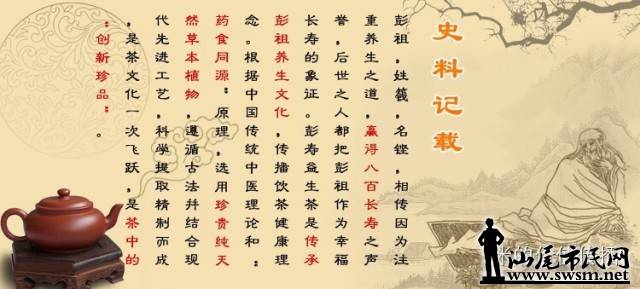 史料记载
彭祖，姓篯，名铿，相传因为注
重养生之道，赢得八百长寿之声
誉，后世之人都把彭祖作为幸福
长寿的象征。彭寿益生茶是传承
彭祖养生文化，传播饮茶健康理
念。根据中国传统中医理论和“
药食同源”原理，选用珍贵纯天
然草本植物，遵循古法并结合现
代先进工艺，科学提取精制而成
，是茶文化一次飞跃，是茶中的
“创新珍品”。
山尾市民网
www.swsm.net